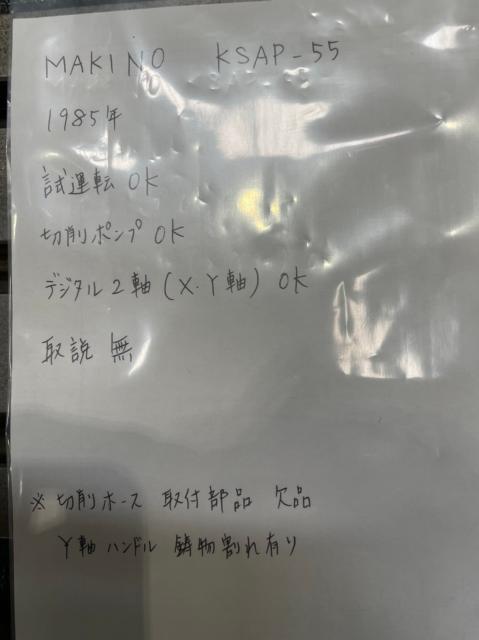 MAKINO KSAP-55
1985年
試運転 OK
切削ポンプ OK
デジタル2軸(X.Y軸) OK
取説 無
※ 切削ホース 取付部品 欠品
Y軸ハンドル 鋳物割れ有り